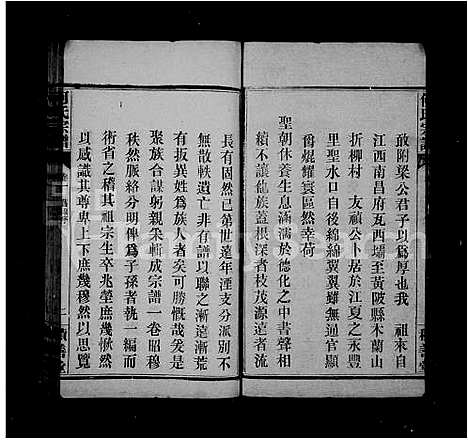 敢附梁公君子以爲厚也我 祖來自
江西南昌府瓦西壩至黄陂縣木蘭山
折柳村 友禎公卜居於江夏之永豐
里聖水口自後綿綿翼翼雖無通官顯
爵焜耀寰區然幸荷
聖朝休養生息涵濡於德化之中書聲相
續不讓他族蓋根深者枝茂源遠者流
長有固然已第世遠年湮支分派別不
無散軼遺亡非有譜以聯之漸遠漸荒
有拔異姓爲族人者矣可勝慨哉於是
聚族合謀躬親采輯成宗譜一卷昭穆
秩然脈絡分明俾爲子孫者執一編而
術省之稽其祖宗生卒兆塋庶幾愀然
以感識其尊卑上下庶幾穆然以思覽
何氏宗譜